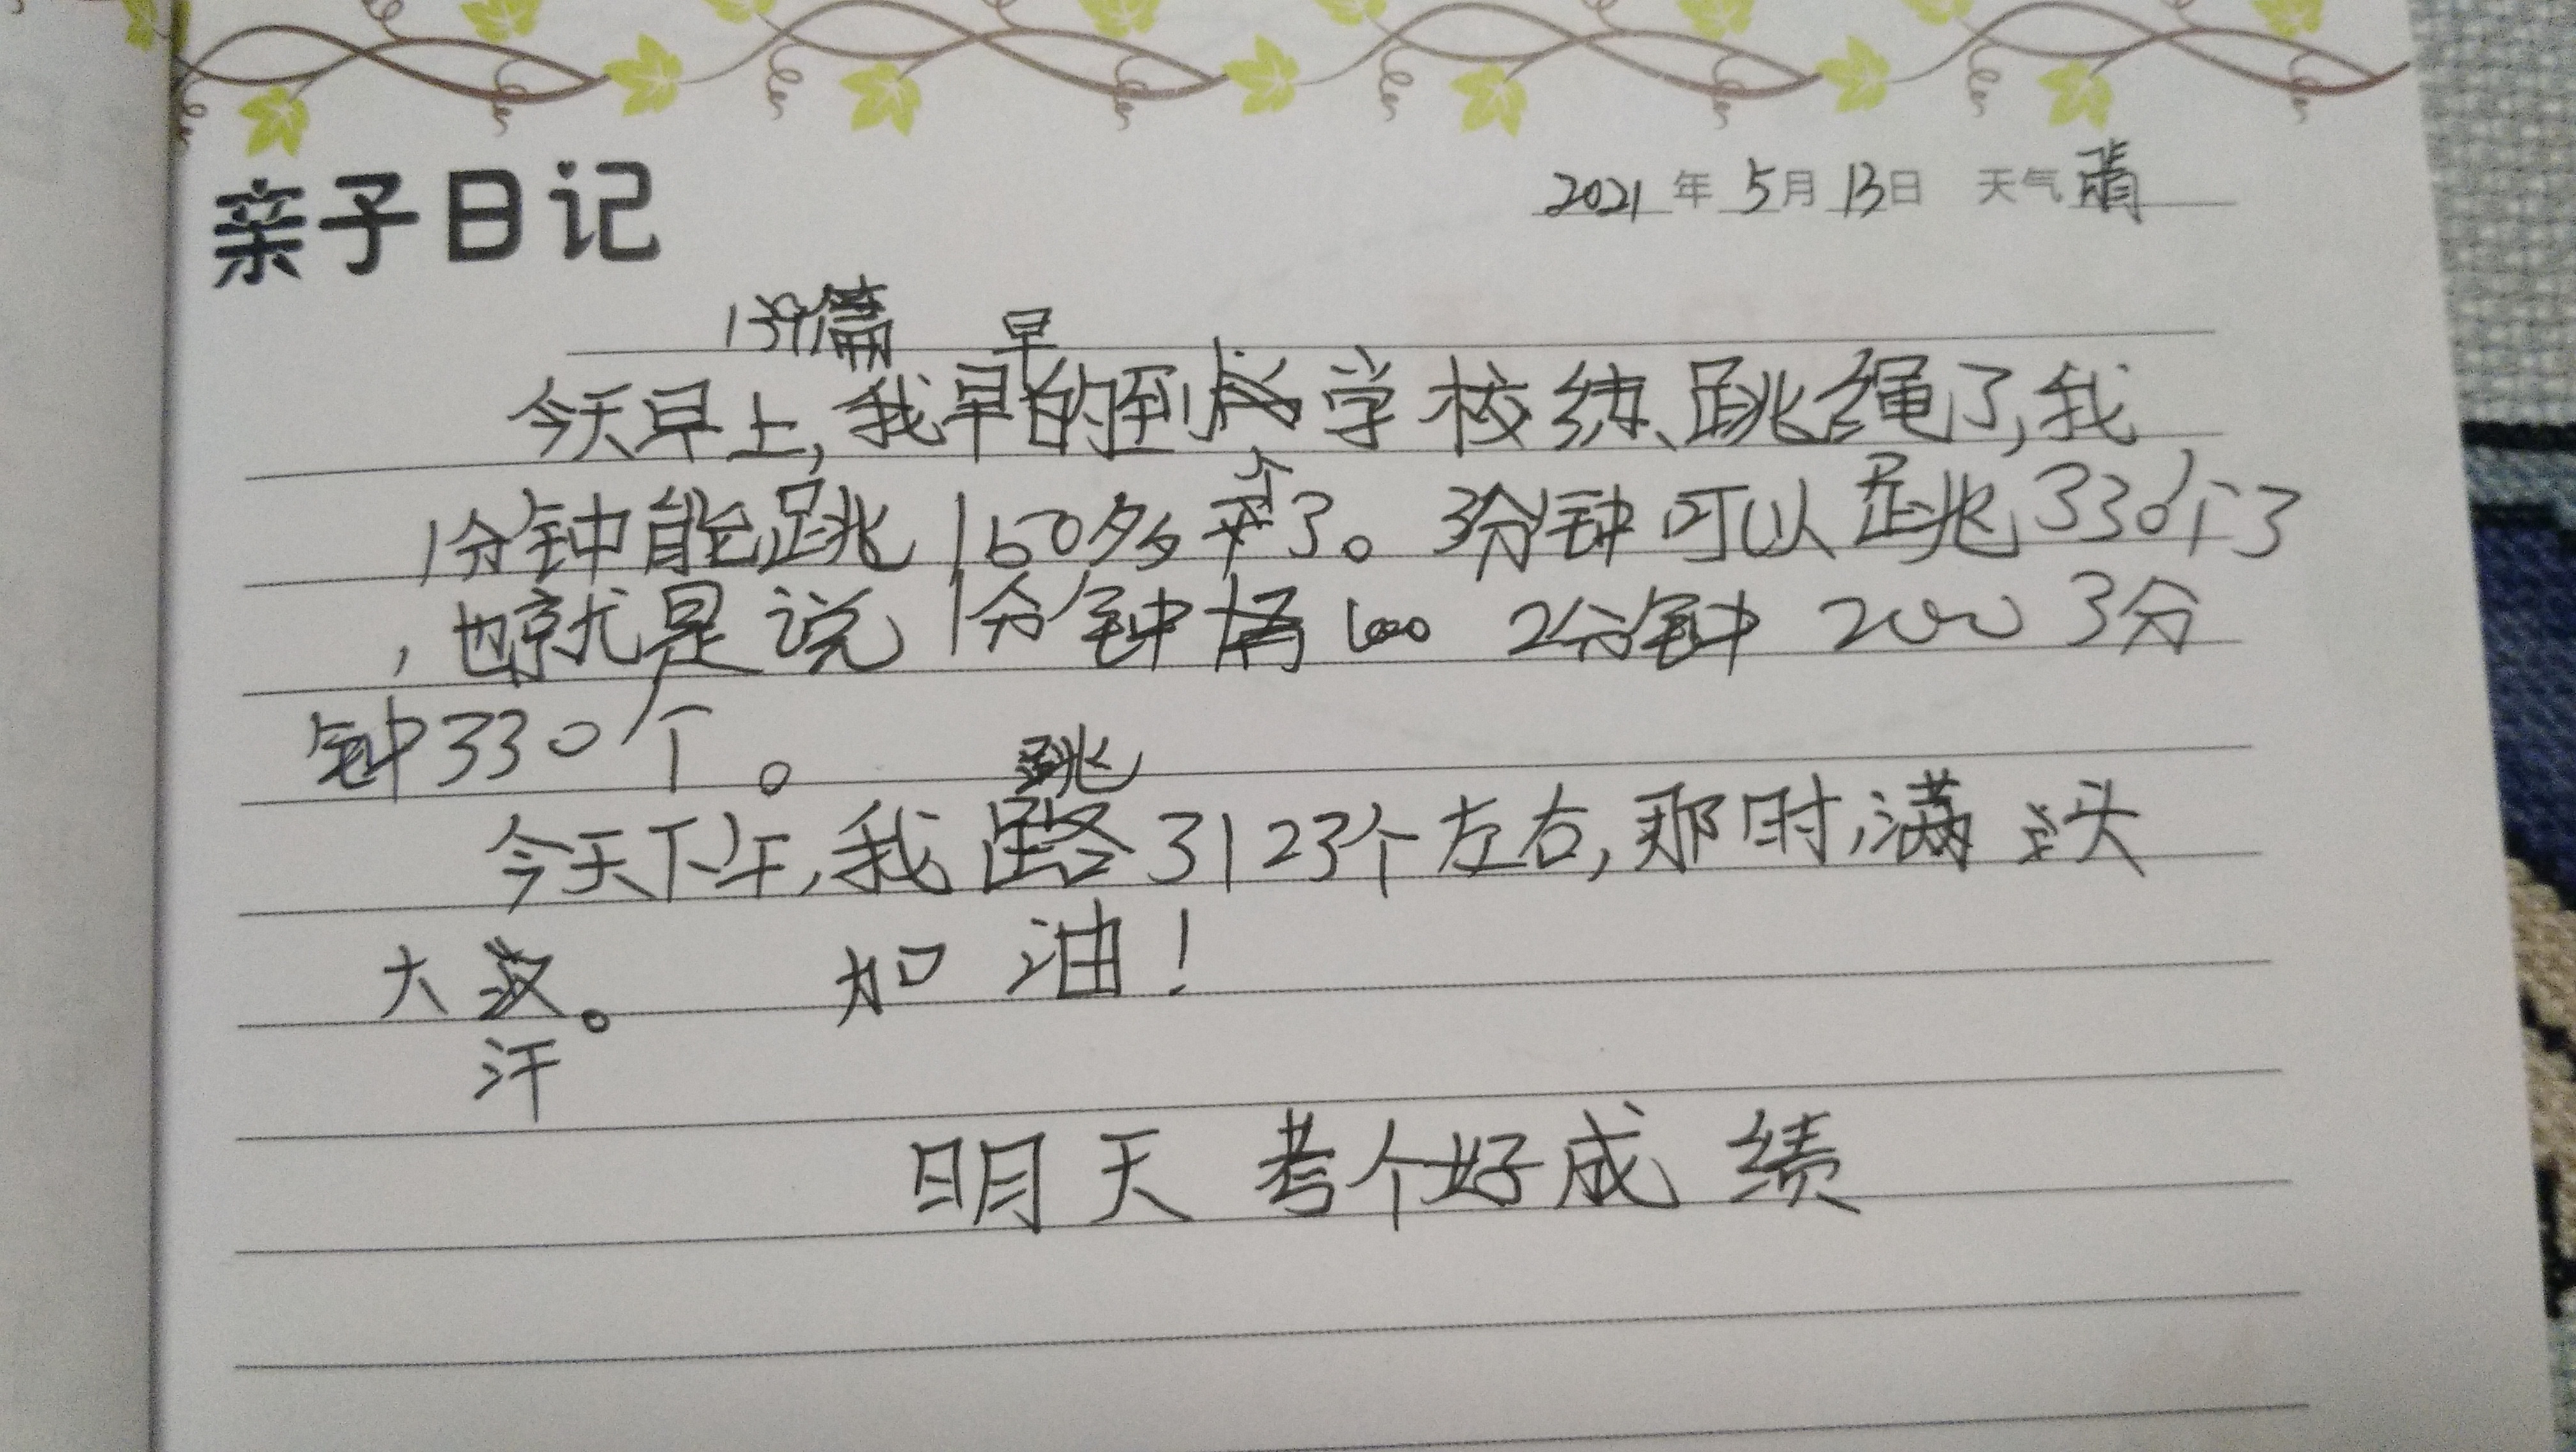 亲子日记
2021年5月13日 天气晴
139篇
今天早上,我早早的到学校练跳绳了,我
1分钟能跳160多个了。3分钟可以跳330个了
,也就是说1分钟 2分钟 200 3分
钟330个。
今天下午,我跳3123个左右,那时,满头
大汗。 加油!
明天考个好成绩